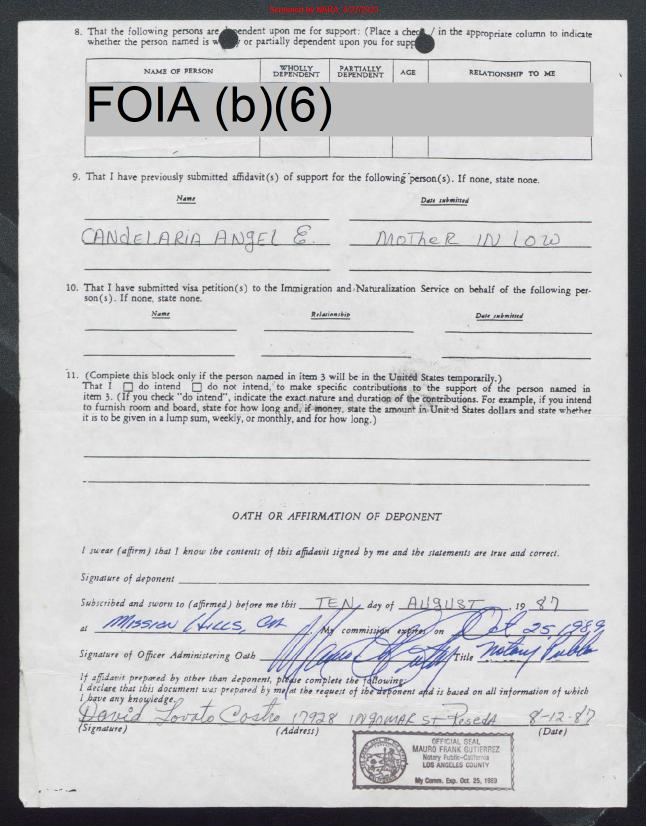 Scanned by NARA, 4/27/2023
8. That the following persons are dependent upon me for support: (Place a check / in the appropriate column to indicate
whether the person named is w y or partially dependent upon you for supp
NAME OF PERSON WHOLLY DEPENDENT PARTIALLY DEPENDENT AGE RELATIONSHIP TO ME
FOIA (b)(6)
9. That I have previously submitted affidavit(s) of support for the following person(s). If none, state none.
Name Date submitted
CANDELARIA ANGEL E. MOTHER IN LOW
10. That I have submitted visa petition(s) to the Immigration and Naturalization Service on behalf of the following per-
son(s). If none, state none.
Name Relationship Date submitted
11. (Complete this block only if the person named in item 3 will be in the United States temporarily.)
That I do intend do not intend, to make specific contributions to the support of the person named in
item 3. (If you check "do intend", indicate the exact nature and duration of the contributions. For example, if you intend
to furnish room and board, state for how long and, if money, state the amount in United States dollars and state whether
it is to be given in a lump sum, weekly, or monthly, and for how long.)
OATH OR AFFIRMATION OF DEPONENT
I swear (affirm) that I know the contents of this affidavit signed by me and the statements are true and correct.
Signature of deponent
Subscribed and sworn to (affirmed) before me this TEN day of AUGUST, 19 87
at Mission Hills, CA My commission expires on Oct 25, 1989
Signature of Officer Administering Oath Title Notary Public
If affidavit prepared by other than deponent, please complete the following:
I declare that this document was prepared by me at the request of the deponent and is based on all information of which
I have any knowledge.
David Lovato Castro 17928 INGOMAR ST RESEDA 8-12-87
(Signature) (Address) (Date)
OFFICIAL SEAL
MAURO FRANK GUTIERREZ
Notary Public-California
LOS ANGELES COUNTY
My Comm. Exp. Oct. 25, 1989